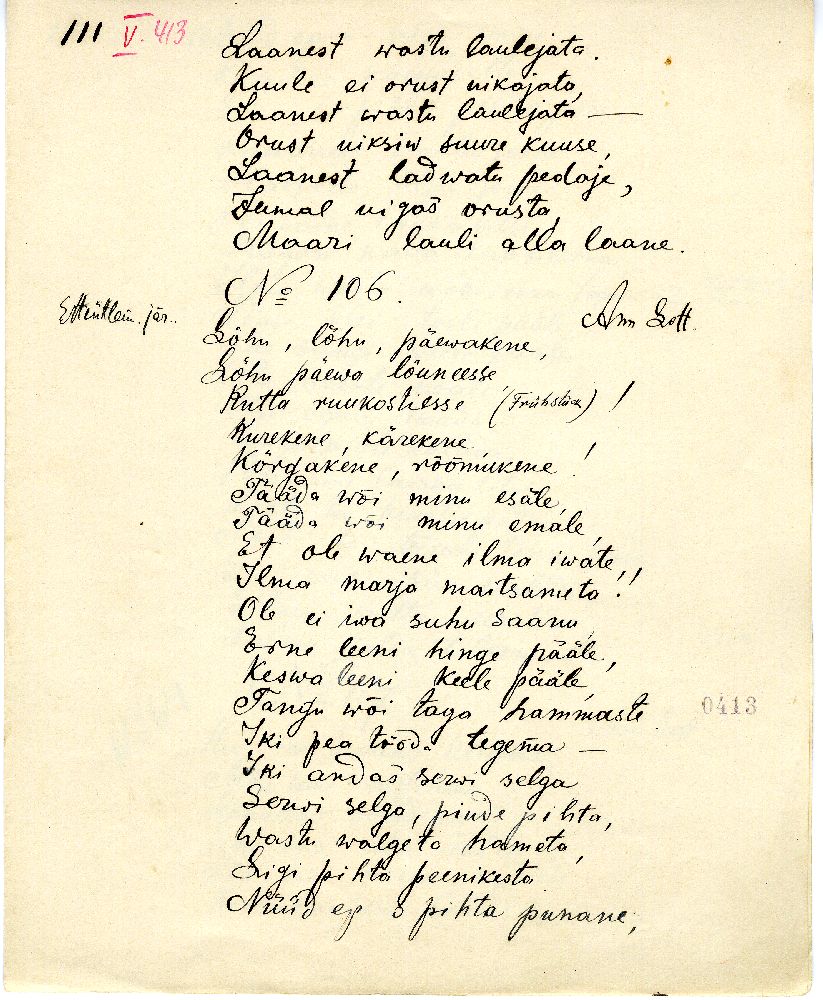 111 V. 413
Laanest wastu laulejata.
Kuule ei orust nikajata,
Laanest wastu laulejata —
Orust niksiw suure kuuse,
Laanest ladwatu pedaje,
Jumal nigas orusta,
Maari lauli alla laane.
No 106.
Etteütlem. jär. Ann Lott.
Lõhu, lõhu, päewakene,
Lõhu päewa lõuneesse
Rutta ruukostiesse (Frühstück)!
Kurekene, kärekene
Kõrgakene, rõõmukene!
Tääda wõi minu esäle,
Tääda wõi minu emäle,
Et ole waene ilma iwate,
Ilma marja maitsameta!!
Ole ei iwa suhu saanu,
Erne leeni hinge pääle,
Keswa leeni keele pääle,
Tangu wõi taga hammaste
Iki pea tööda tegema —
Iki andas serwi selga
Serwi selga, pinde pihta,
Wastu walgeta hameta,
Ligi pihta peenikesta
Nüüd ep s pihta punane,
0413